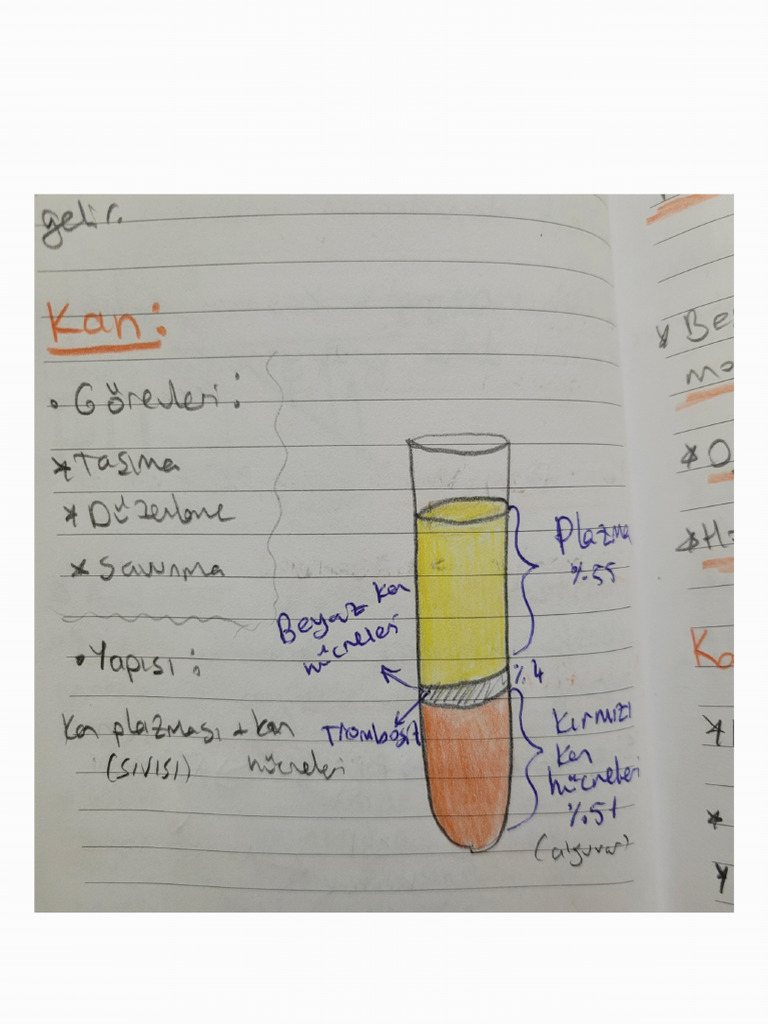 gelir.
Kan:
• Görevleri:
* Taşıma
* Düzenleme
* Savunma
• Yapısı:
Kan plazması + kan
(sıvısı) hücreleri
Plazma
%55
Beyaz kan
hücreleri
%4
Trombosit
Kırmızı
kan
hücreleri
%51
(alyuvar)
* Be
mo
Ka